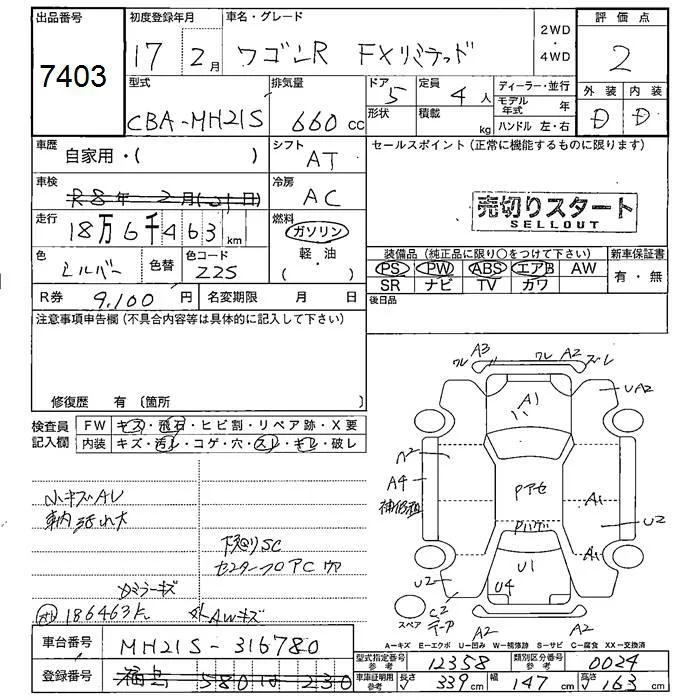 出品番号
7403
初度登録年月
17 2月
車名・グレード
ワゴンR FXリミテッド
2WD
・
4WD
評価点
2
外装 内装
D D
型式
CBA-MH21S
排気量
660 cc
ドア
5
形状
定員
4人
積載
kg
ディーラー・並行
モデル年式 年
ハンドル 左・右
車歴
自家用・( )
シフト
AT
セールスポイント(正常に機能するものに限ります)
売切りスタート
SELLOUT
車検
R8年 2月(21日)
冷房
AC
走行
18万6千463km
燃料
ガソリン
・
軽・油
( )
色
シルバー
色替
色コード
Z2S
装備品(純正品に限り○をつけて下さい)
PS PW ABS エアB AW
SR ナビ TV カワ
新車保証書
有・無
R券 9,100円
名変期限 月 日
後日品
注意事項申告欄(不具合内容等は具体的に記入して下さい)
修復歴 有(箇所 )
検査員記入欄
FW キズ・飛石・ヒビ割・リペア跡・X要
内装 キズ・汚レ・コゲ・穴・スレ・キレ・破レ
小キズAU
車内汚れ大
下廻りSC
センターフロアC穴
ルミラーキズ
186463k
外AWキズ
ワレ A3 ワレ A2 ズレ
A1
UA2
A2
A4
補修跡
Pアセ
Pハゲ
A1
U2
A1
U2
U1
U4
C2
テープ
スペア
A2
A2
A-キズ E-エクボ U-凹み W-補修跡 S-サビ C-腐食 XX-交換済
車台番号
MH21S-316780
登録番号
福島 580 は 230
型式指定番号 参考
12358
類別区分番号 参考
0024
車庫証明用 参考
長さ 339cm
幅 147cm
高さ 163cm